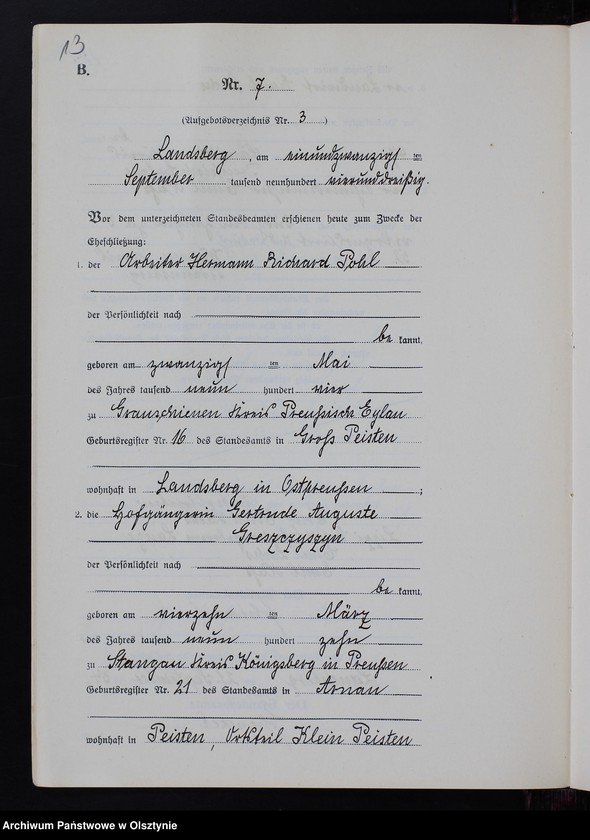 13
B.
Nr. 7.
(Aufgebotsverzeichnis Nr. 3)
Landsberg, am einundzwanzigsten
September tausend neunhundert vierunddreißig.
Vor dem unterzeichneten Standesbeamten erschienen heute zum Zwecke der
Eheschließung:
1. der Arbeiter Hermann Richard Pohl
der Persönlichkeit nach
be kannt,
geboren am zwanzigsten Mai
des Jahres tausend neun hundert vier
zu Grauschienen Kreis Preußisch Eylau
Geburtsregister Nr. 16 des Standesamts in Groß Peisten
wohnhaft in Landsberg in Ostpreußen;
2. die Hofgängerin Gertrude Auguste
Greszczyszyn
der Persönlichkeit nach
be kannt,
geboren am vierzehnten März
des Jahres tausend neun hundert zehn
zu Stangau Kreis Königsberg in Preußen
Geburtsregister Nr. 21 des Standesamts in Arnau
wohnhaft in Peisten, Ortsteil Klein Peisten
Archiwum Państwowe w Olsztynie